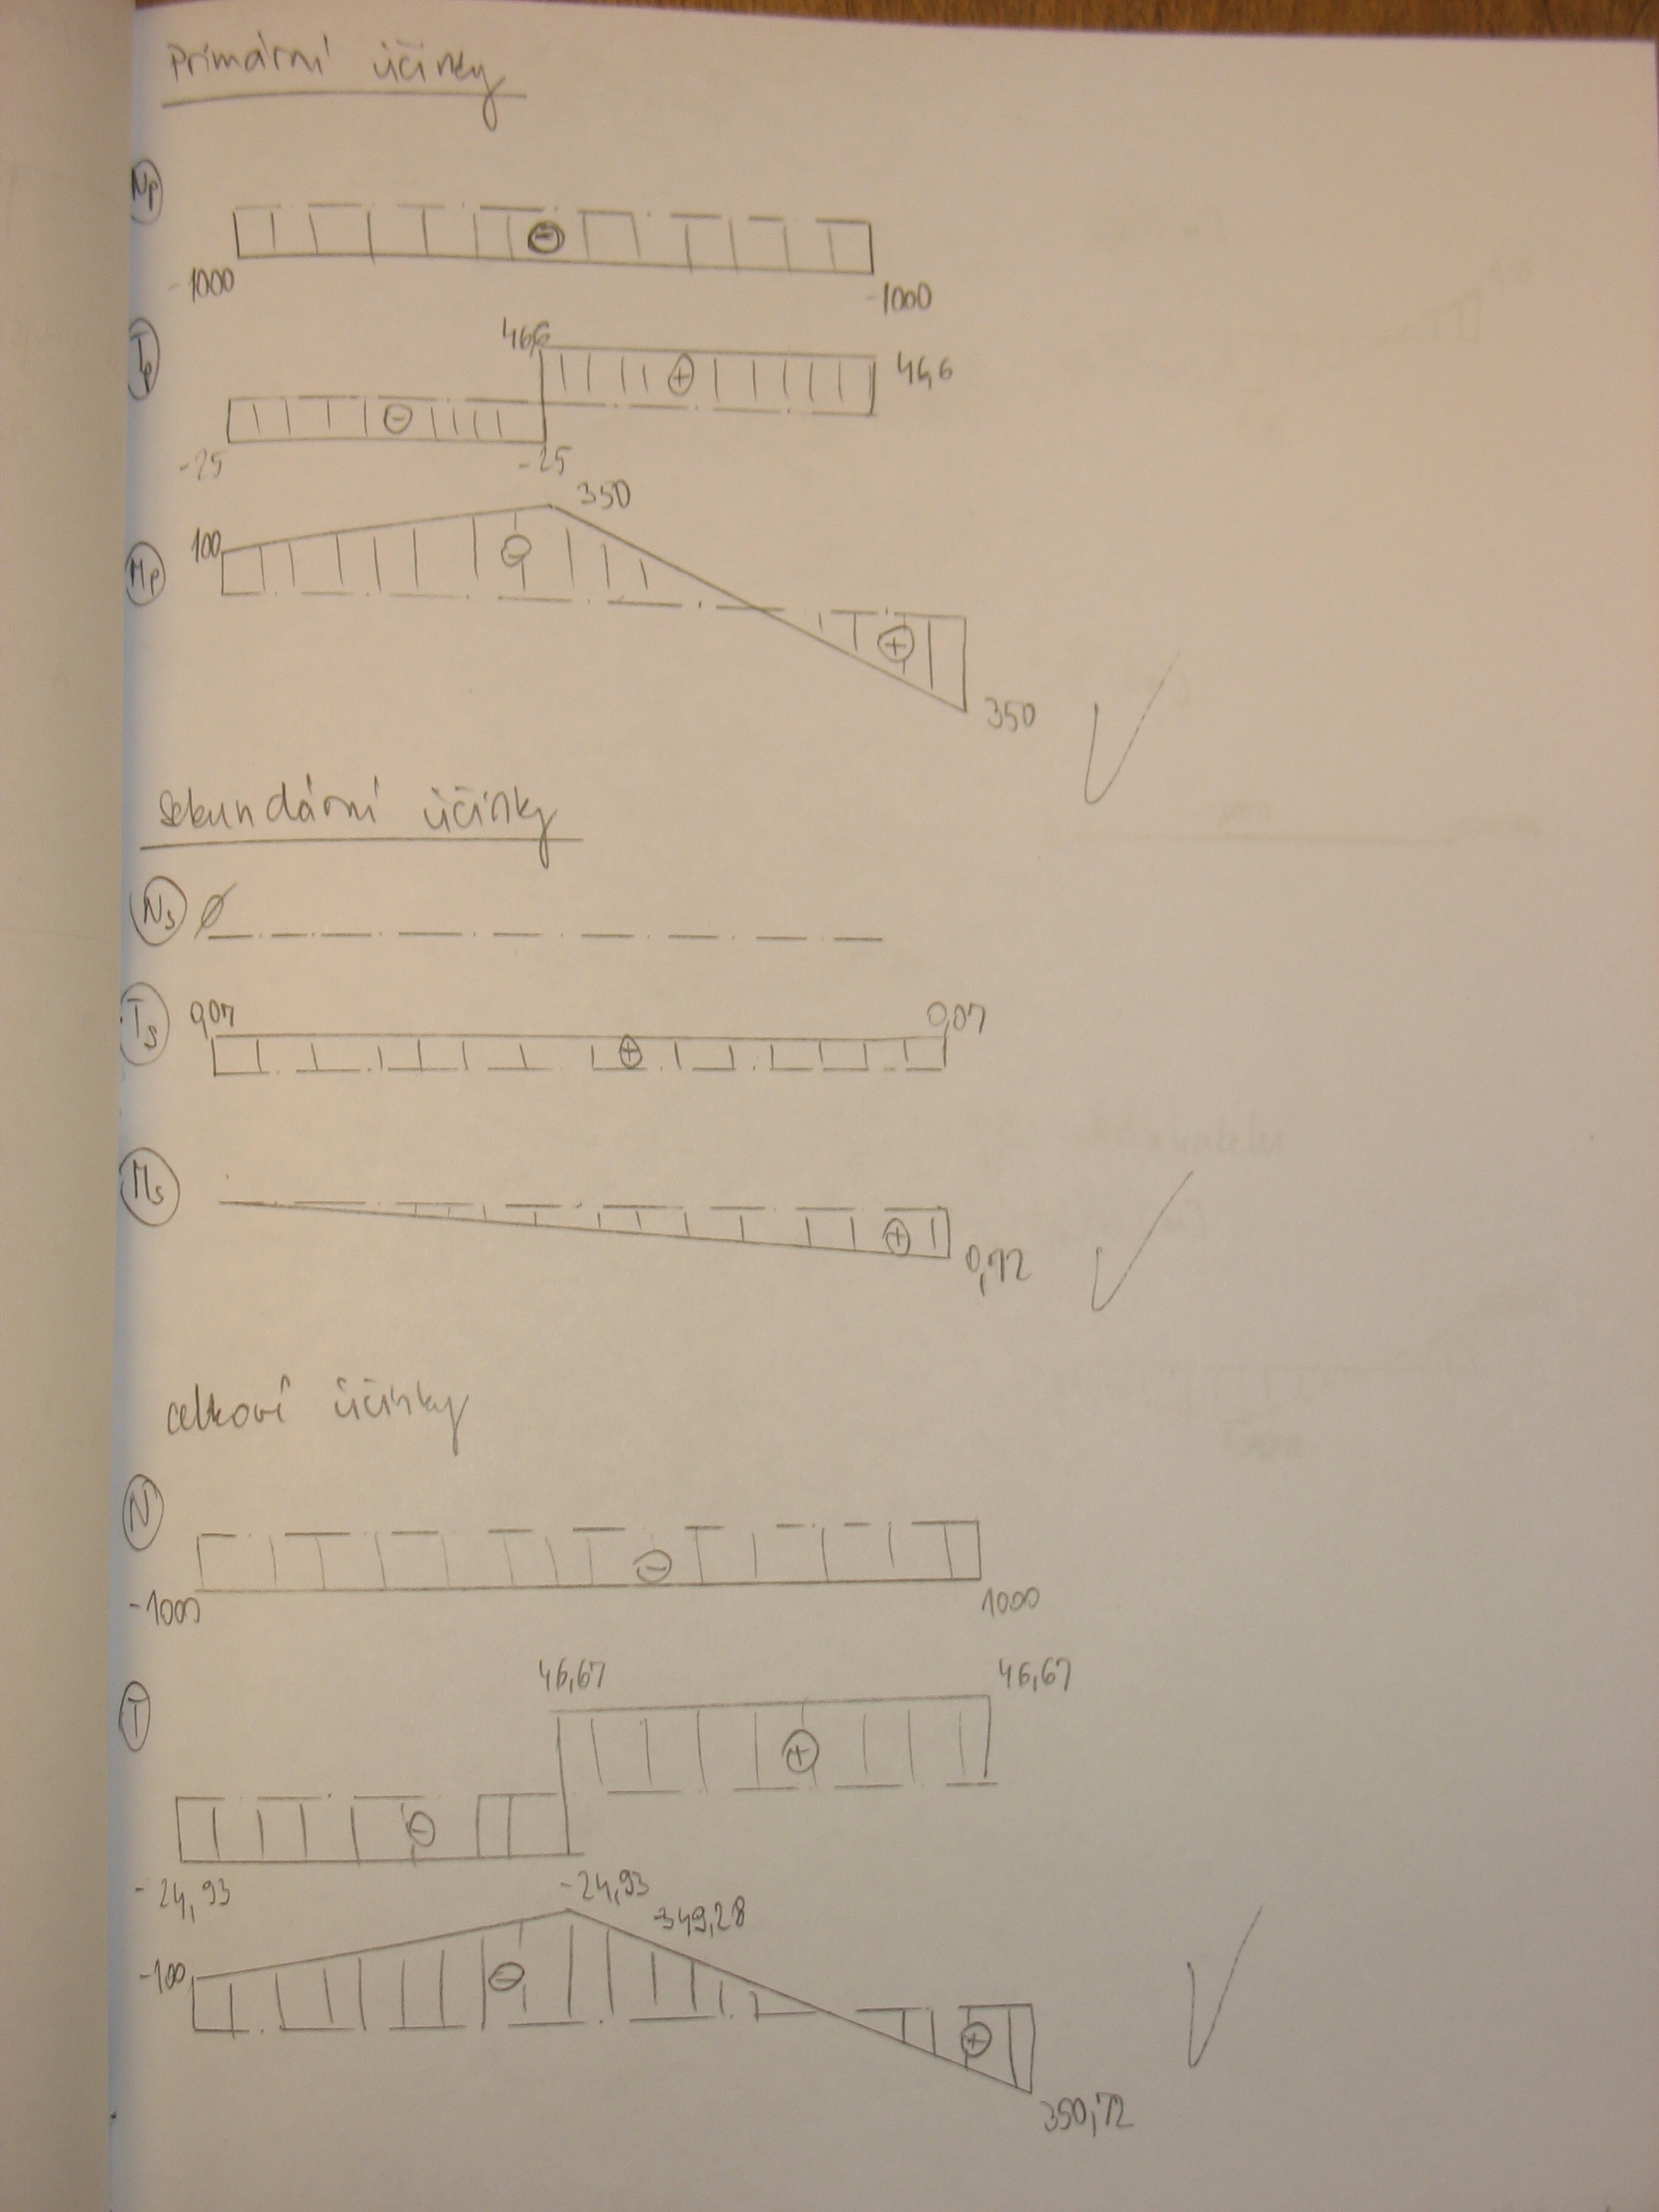 primární účinky
Np
-1000
-1000
46,6
Tp
46,6
-25
-25
350
100
Mp
350
sekundární účinky
Ns Ø
0,07
0,07
Ts
Ms
0,72
celkové účinky
N
-1000
1000
46,67
46,67
T
-24,93
-24,93
-349,28
-100
350,72